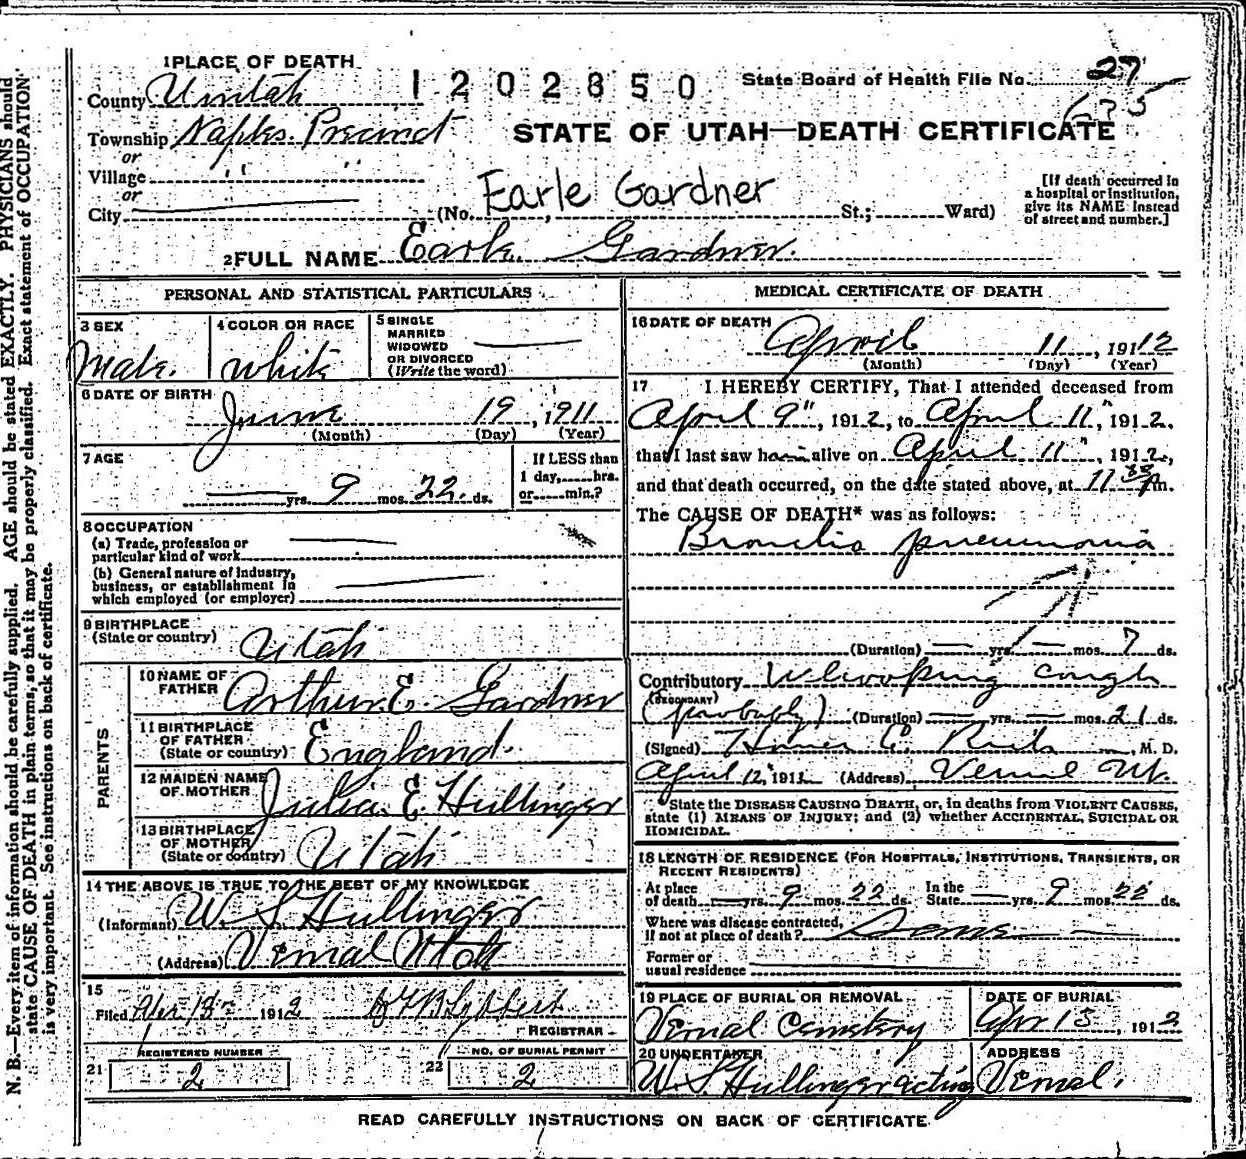 1 PLACE OF DEATH
1202850
State Board of Health File No. 27
675
County Uintah
Township Naples Precinct
STATE OF UTAH—DEATH CERTIFICATE
or
Village " "
or
City
(No. Earle Gardner, St.; Ward)
[If death occurred in
a hospital or institution,
give its NAME instead
of street and number.]
2 FULL NAME Earle Gardner.
PERSONAL AND STATISTICAL PARTICULARS
3 SEX
Male.
4 COLOR OR RACE
White
5 SINGLE
MARRIED
WIDOWED
OR DIVORCED
(Write the word)
6 DATE OF BIRTH
June 19, 1911
(Month) (Day) (Year)
7 AGE
yrs. 9 mos. 22 ds.
If LESS than
1 day, hrs.
or min.?
8 OCCUPATION
(a) Trade, profession or
particular kind of work
(b) General nature of Industry,
business, or establishment in
which employed (or employer)
9 BIRTHPLACE
(State or country) Utah
PARENTS
10 NAME OF
FATHER Arthur E. Gardner
11 BIRTHPLACE
OF FATHER
(State or country) England.
12 MAIDEN NAME
OF MOTHER Julia E. Hullinger
13 BIRTHPLACE
OF MOTHER
(State or country) Utah
14 THE ABOVE IS TRUE TO THE BEST OF MY KNOWLEDGE
(Informant) W. S. Hullinger
(Address) Vernal Utah
15
Filed 1912
REGISTRAR
21 REGISTERED NUMBER
2
22 NO. OF BURIAL PERMIT
2
MEDICAL CERTIFICATE OF DEATH
16 DATE OF DEATH
April 11, 1912
(Month) (Day) (Year)
17 I HEREBY CERTIFY, That I attended deceased from
April 9", 1912, to April 11", 1912,
that I last saw him alive on April 11", 1912,
and that death occurred, on the date stated above, at 11 m.
The CAUSE OF DEATH* was as follows:
Broncho pneumonia
(Duration) yrs. mos. 7 ds.
Contributory Whooping cough
(SECONDARY)
(probably) (Duration) yrs. mos. 21 ds.
(Signed) Homer E. , M. D.
April 12, 191 (Address) Vernal Ut.
State the DISEASE CAUSING DEATH, or, in deaths from VIOLENT CAUSES,
state (1) MEANS OF INJURY; and (2) whether ACCIDENTAL, SUICIDAL OR
HOMICIDAL.
18 LENGTH OF RESIDENCE (FOR HOSPITALS, INSTITUTIONS, TRANSIENTS, OR
RECENT RESIDENTS)
At place
of death yrs. 9 mos. 22 ds.
In the
State yrs. 9 mos. 22 ds.
Where was disease contracted,
If not at place of death? Same
Former or
usual residence
19 PLACE OF BURIAL OR REMOVAL
Vernal Cemetery
DATE OF BURIAL
Apr 13, 1912
20 UNDERTAKER
W. S. Hullinger acting
ADDRESS
Vernal.
READ CAREFULLY INSTRUCTIONS ON BACK OF CERTIFICATE
N. B.—Every item of information should be carefully supplied. AGE should be stated EXACTLY. PHYSICIANS should
state CAUSE OF DEATH in plain terms, so that it may be properly classified. Exact statement of OCCUPATION
is very important. See instructions on back of certificate.